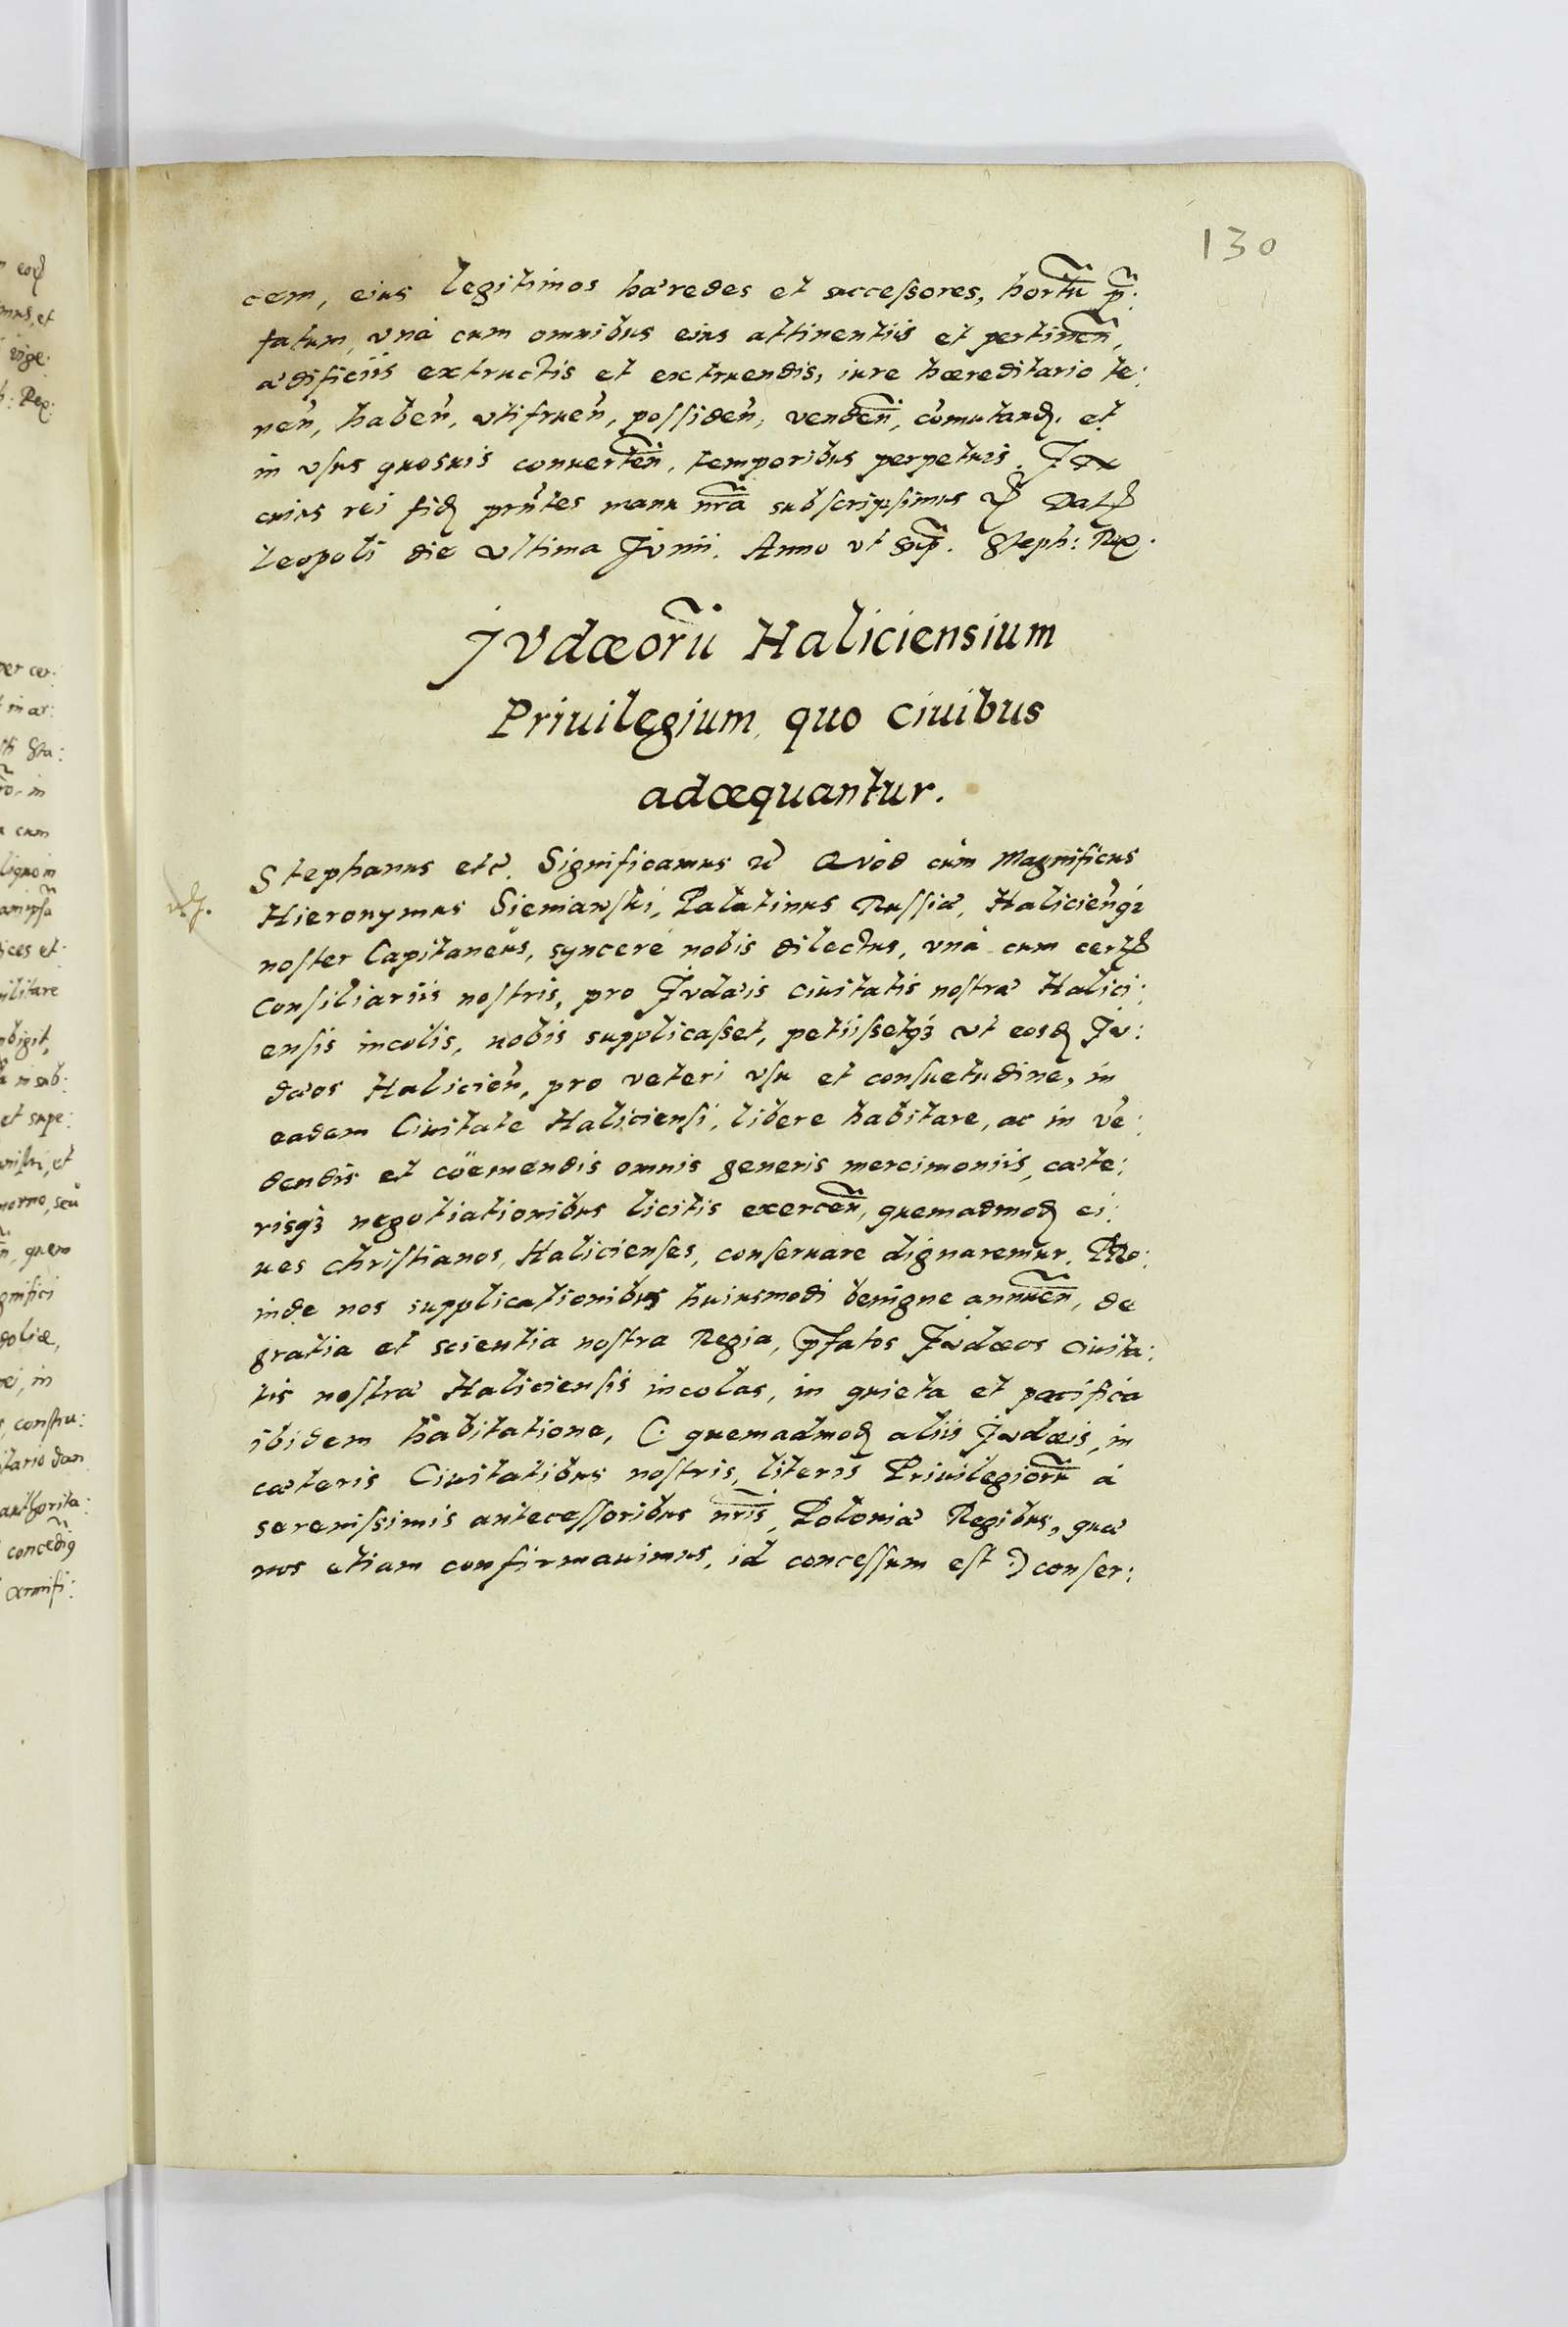 130
cem, eius legitimos hæredes et successores, hortũ p̃:
fatum, vnà cum omnibus eius attinentiis et pertineñ,
ædificiis extructis et extruendis, iure hæreditario te:
neñ, habeñ, vtifrueñ, possideñ, vendeñ, com̃utand. et
in vsus quosuis conuerteñ, temporibus perpetuis. In
cuius rei fid. prñtes manu nrã subscripsimus Dat
Leopoli die vltima Junii. Anno vt sup̃. Steph: Rex.
Jvdæorũ Haliciensium
Priuilegium, quo ciuibus
adæquantur.
Stephanus etc. Significamus Qvod cùm Magnificus
Hieronymus Sieniawski, Palatinus Russiæ, Halicieñq3
noster Capitaneus, syncerè nobis dilectus, vnà cum cert
Consiliariis nostris, pro Jvdæis ciuitatis nostræ Halici:
ensis incolis, nobis supplicasset, petiissetq3 vt eosd Jv:
dæos Halicieñ, pro veteri vsu et consuetudine, in
eadem Ciuitate Haliciensi, libere habitare, ac in vẽ:
dendis et coëmendis omnis generis mercimoniis, cæte:
risq3 negotiationibus licitis exerceñ, quemadmod ci:
ues Christianos, Halicienses, conseruare dignaremur. Pro:
inde nos supplicationibus huiusmodi benigne annueñ, de
gratia et scientia nostra Regia, p̃fatos Jvdæos ciuita:
tis nostræ Haliciensis incolas, in quieta et pacifica
ibidem habitatione, (: quemadmod aliis Jvdæis, in
cæteris Ciuitatibus nostris, literis Priuilegiorũ à
serenissimis antecessoribus nrĩs, Poloniæ Regibus, quæ
nos etiam confirmauimus, id concessum est :) conser: